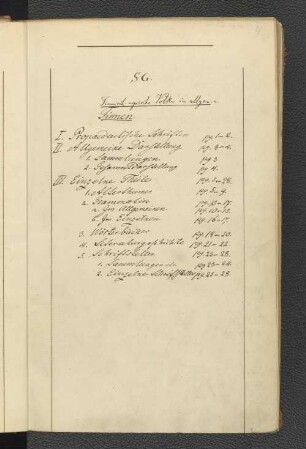 SG.
Simon.
I. Propaedeutische Schriften pg. 1-2.
II. Allgemeine Darstellung pg. 3-4.
1. Sammlungen. pg 3
2. Gesammtdarstellung pg 4.
III. Einzelne Theile pg. 5-28.
1. Alterthums pg. 5-9.
2. Grammatik pg. 10-17.
a. Im Allgemeinen. pg. 10-15.
b. Im Einzelnen pg. 16-17.
3. Wörterbücher pg. 18-20.
4. Literaturgeschichte pg. 21-22.
5. Schriftsteller pg. 22-28.
a. Sammlungen etc. pg 23-24.
b. Einzelne Schriftsteller pg 25-28.